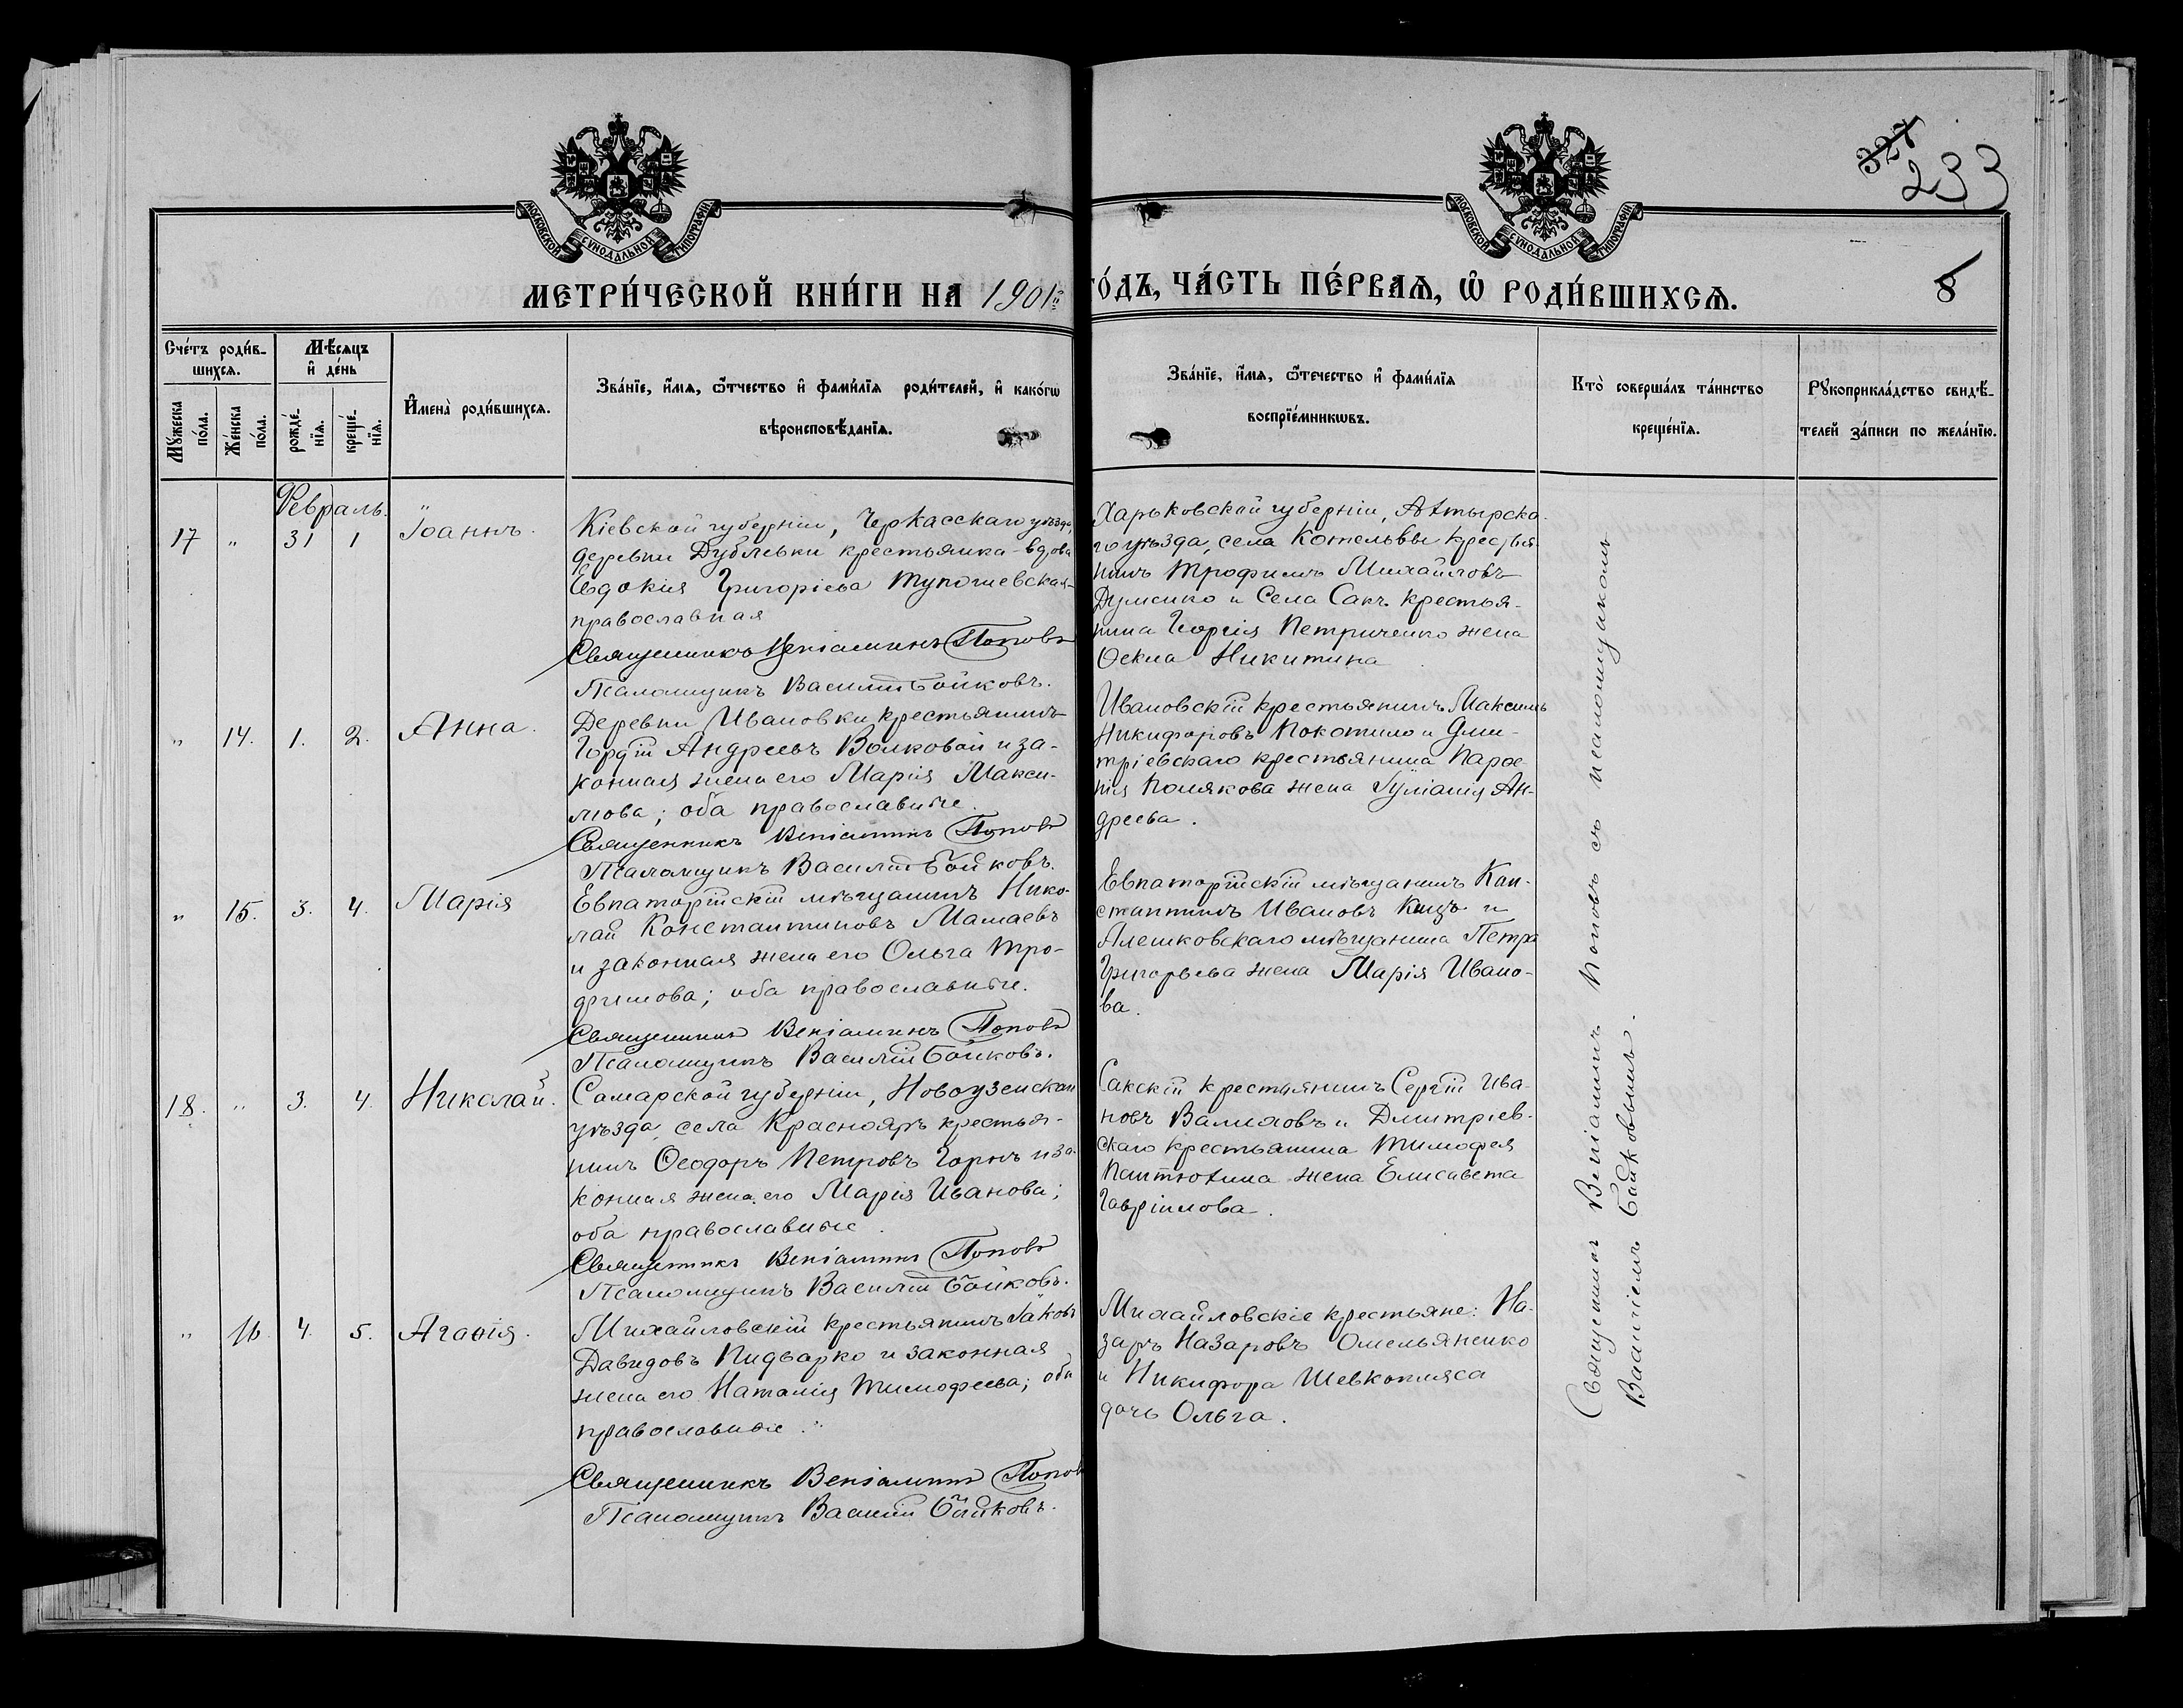 МОСКОВСКОЙ СѴНОДАЛЬНОЙ ТИПОГРАФІИ
МОСКОВСКОЙ СѴНОДАЛЬНОЙ ТИПОГРАФІИ
327
233
МЕТРИ́ЧЕСКОЙ КНИ́ГИ НА 1901й
ГО́ДЪ, ЧА́СТЬ ПЕ́РВАѦ, Ѡ РОДИ́ВШИХСѦ.
8
Счетъ родив-
шихсѧ.
Мѣсяцъ
и день
Мꙋжеска
пола.
Женска
пола.
рожде-
нїѧ.
креще-
нїѧ.
Имена родившихсѧ.
Званїе, имѧ, ѿчество и фамилїѧ родителей, и какогѡ
вѣроисповѣданїѧ.
Званїе, имѧ, ѿтечество и фамилїѧ
воспрїемникѡвъ.
Кто совершалъ таинство
крещенїѧ.
Рꙋкоприкладство свидѣ-
телей записи по желанїю.
Февраль.
17 " 31 1 Іоаннъ.
Кіевской губерніи, Черкасскаго уѣзда,
деревни Дублевки крестьянка-вдова
Евдокия Григоріева
православная
Священникъ Веніаминъ Поповъ
Псаломщикъ Василій Бойковъ.
Харьковской губерніи, Ахтырска-
го уѣзда, села Котельвы крестья-
нинъ Трофимъ Михайловъ
Думенко и Села Сакъ крестья-
нина Георгія Петриченко жена
Ѳекла Никитина
" 14. 1. 2. Анна.
Деревни Ивановки крестьянинъ
Гордій Андреевъ Волковой и за-
конная жена его Марія Макси-
мова; оба православные.
Священникъ Веніаминъ Поповъ
Псаломщикъ Василій Бойковъ.
Ивановскій крестьянинъ Максимъ
Никифоровъ Покотило и Дми-
тріевскаго крестьянина Парѳе-
нія Полякова жена Іуліанія Ан-
дреева.
" 15. 3. 4. Марія
Евпаторійскій мѣщанинъ Нико-
лай Константиновъ Мамаевъ
и законная жена его Ольга Тро-
фимова; оба православные.
Священникъ Веніаминъ Поповъ
Псаломщикъ Василій Бойковъ.
Евпаторійскій мѣщанинъ Кон-
стантинъ Ивановъ и
Алешковскаго мѣщанина Петра
Григорьева жена Марія Ивано-
ва.
18. " 3. 4. Николай.
Самарской губерніи, Новоузенскаго
уѣзда, села Краснояръ крестья-
нинъ Ѳеодоръ Петровъ и за-
конная жена его Марія Иванова;
оба православные.
Священникъ Веніаминъ Поповъ
Псаломщикъ Василій Бойковъ.
Сакскій крестьянинъ Сергій Ива-
новъ и Дмитріев-
скаго крестьянина Тимофея
Пантюхина жена Елисавета
Гавріилова.
" 16. 4. 5. Агаѳія.
Михайловскій крестьянинъ Іаковъ
Давидовъ Пидварко и законная
жена его Наталія Тимофеева; оба
православные.
Священникъ Веніаминъ Поповъ
Псаломщикъ Василій Бойковъ.
Михайловскіе крестьяне: На-
заръ Назаровъ Омельяненко
и Никифора Шевкопляса
дочь Ольга.
Священникъ Веніаминъ Поповъ съ псаломщикомъ
Василіемъ Бойковымъ.